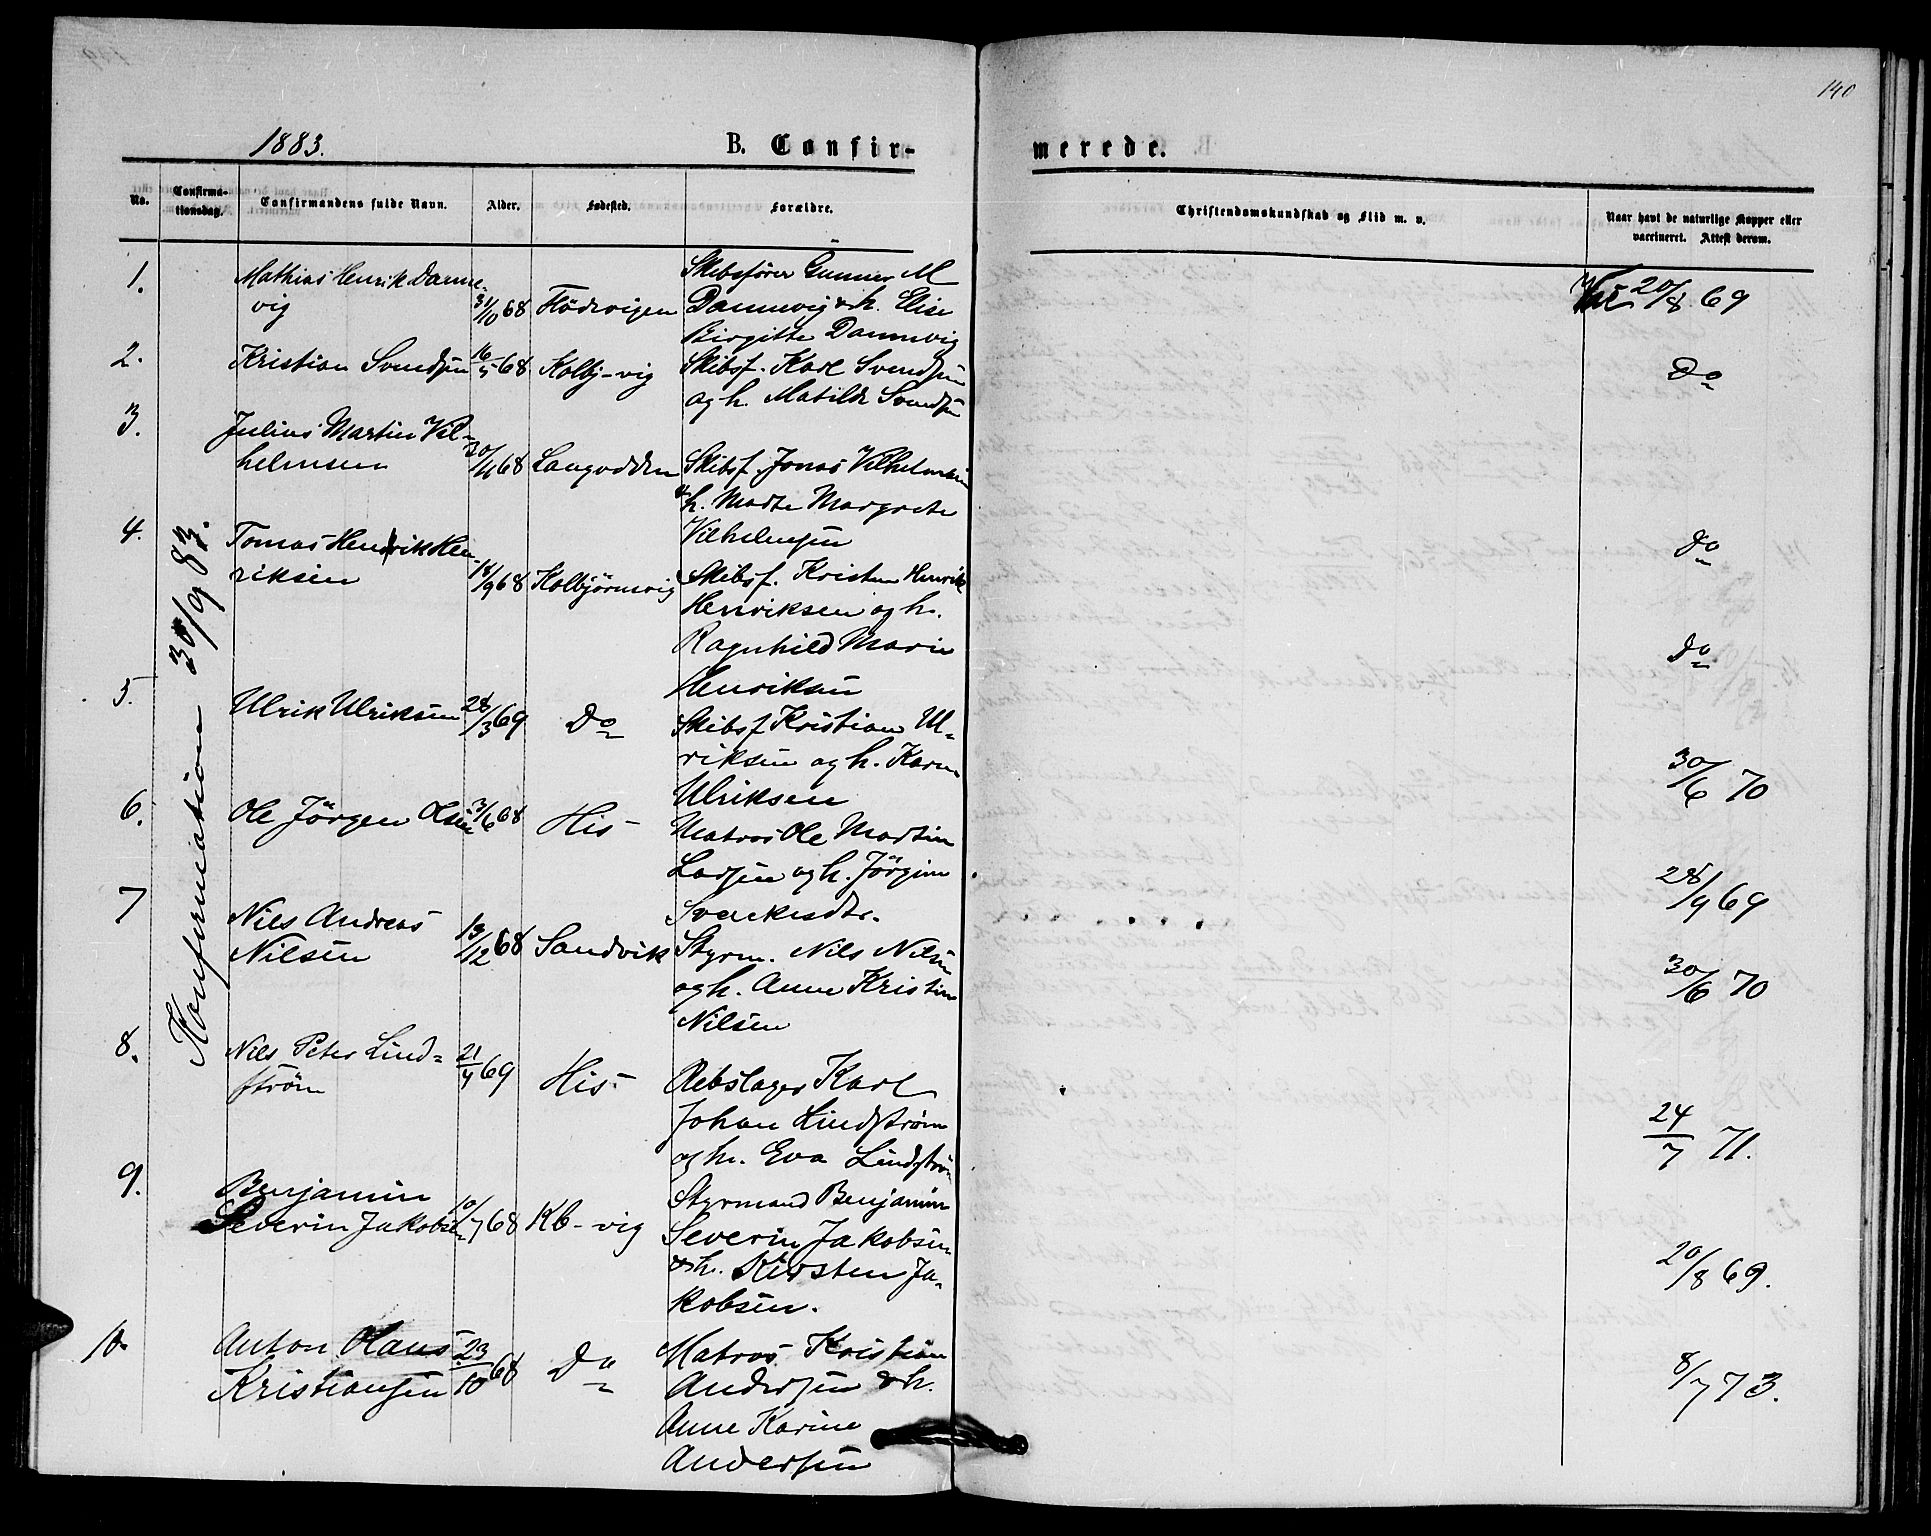 140
1883.
B. Confir-
merede.
No.
Confirma-
tionsdag.
Confirmandens fulde Navn.
Alder.
Fødested.
Forældre.
Christendomskundskab og Flid m. v.
Naar havt de naturlige Kopper eller
vaccineret. Attest derom.
Konfirmation 30/9 83.
1.
Mathias Henrik Danne-
vig
31/10 68
Flödevigen
Skibsfører Gunner M
Dannevig & h. Elise
Birgitte Dannevig
20/8 69
2.
Kristian Svendsen
16/5 68
Kolbj-vig
Skibsf. Karl Svendsen
og h. Matilde Svendsen
Do
3.
Julius Martin Vil-
helmsen
30/4 68
Langodden
Skibsf. Jonas Vilhelmsen
& h. Madte Margrete
Vilhelmsen
Do
4.
Tomas Hendrik Hen-
riksen
18/9 68
Kolbjörnsvig
Skibsf. Kristen Henrik
Henriksen og h.
Ragnhild Marie
Henriksen
Do
5.
Ulrik Ulriksen
28/3 69
Do
Skibsf Kristian Ul-
riksen og h. Karen
Ulriksen
30/6 70
6.
Ole Jörgen Olsen
3/6 68
His
Matros Ole Martin
Larsen og h. Jörgine
28/9 69
7
Nils Andreas
Nilsen
13/12 68
Sandvik
Styrm. Nils Nilsen
og h. Anne Kristine
Nilsen
30/6 70
8.
Nils Peter Lind=
ström
21/4 69
His
Rebslager Karl
Johan Lindström
og h. Eva Lindström
24/7 71.
9.
Benjamin
Severin Jakobsen
10/7 68
Kb-vig
Styrmand Benjamin
Severin Jakobsen
& h. Kirsten Ja-
kobsen.
20/8 69.
10.
Anton Hans
Kristiansen
23/10 68
Do
Matros Kristian
Andersen & h.
Anne Karine
Andersen
8/7 73.